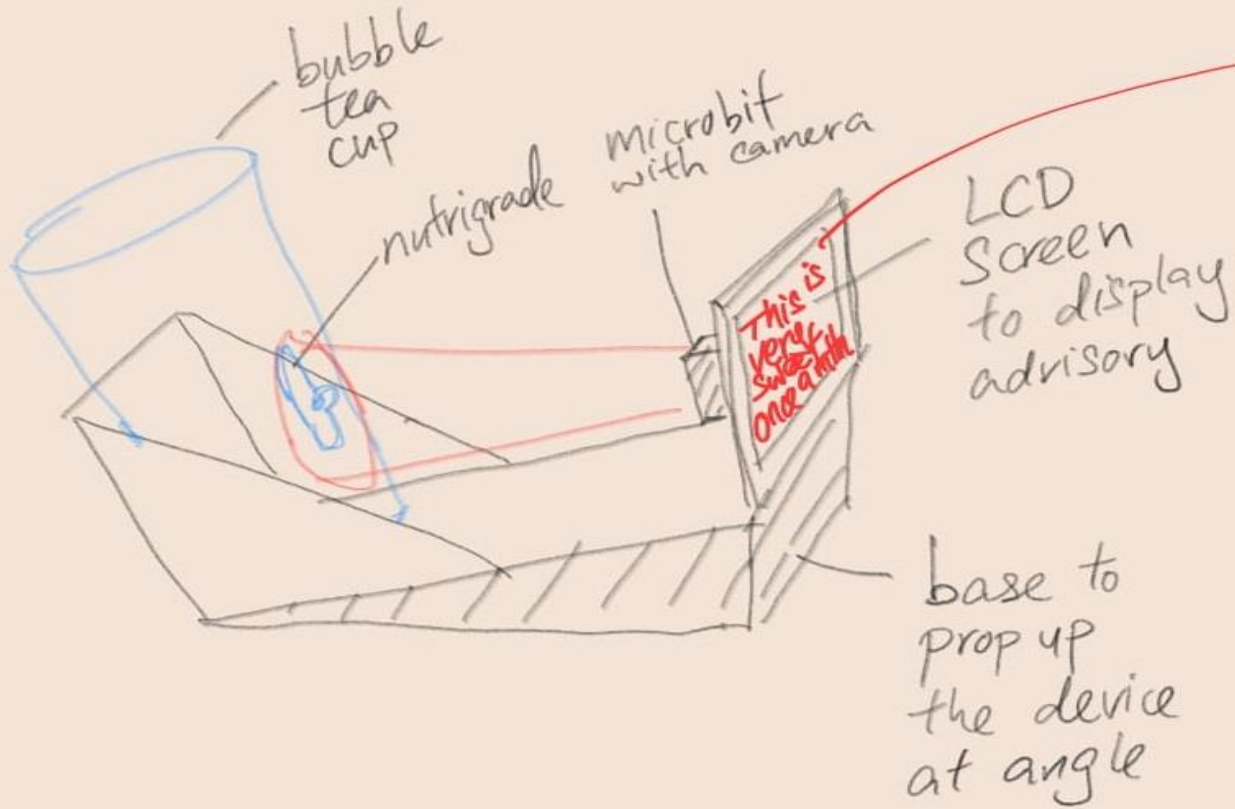 bubble
tea
cup
nutrigrade
microbit
with camera
LCD
Screen
to display
advisory
This is
very
sweet
once a mth
base to
prop up
the device
at angle